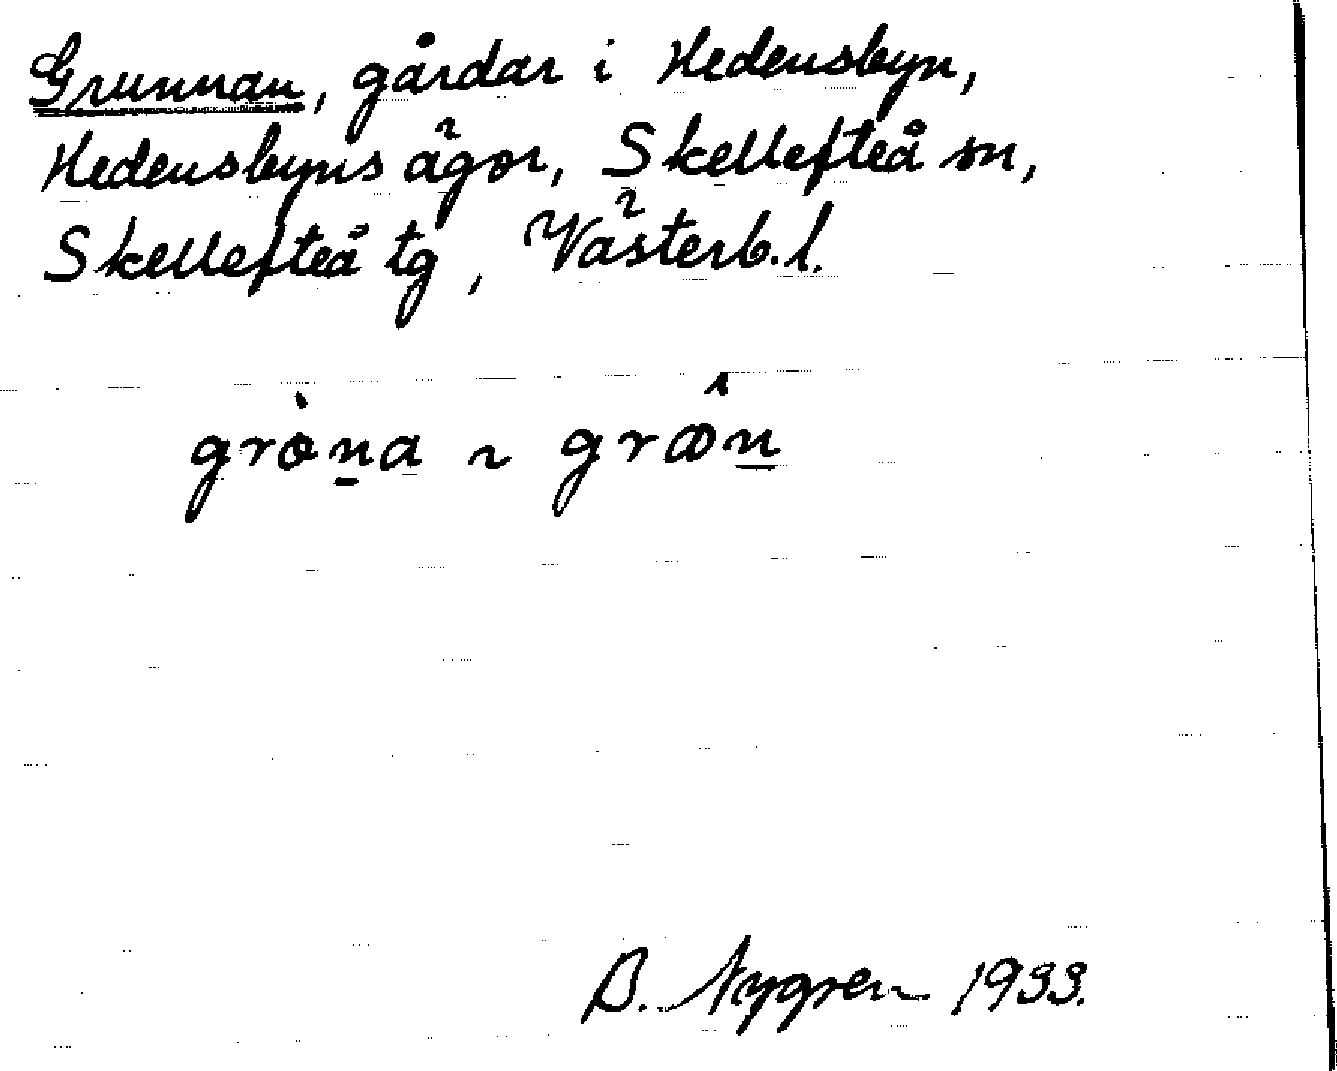 Grunnan, gårdar i Hedensbyn,
Hedensbyns ägor, Skellefteå sn,
Skellefteå tg, Västerb. l.
gròn̲a ~ grôn̲
B. Nygren 1933.